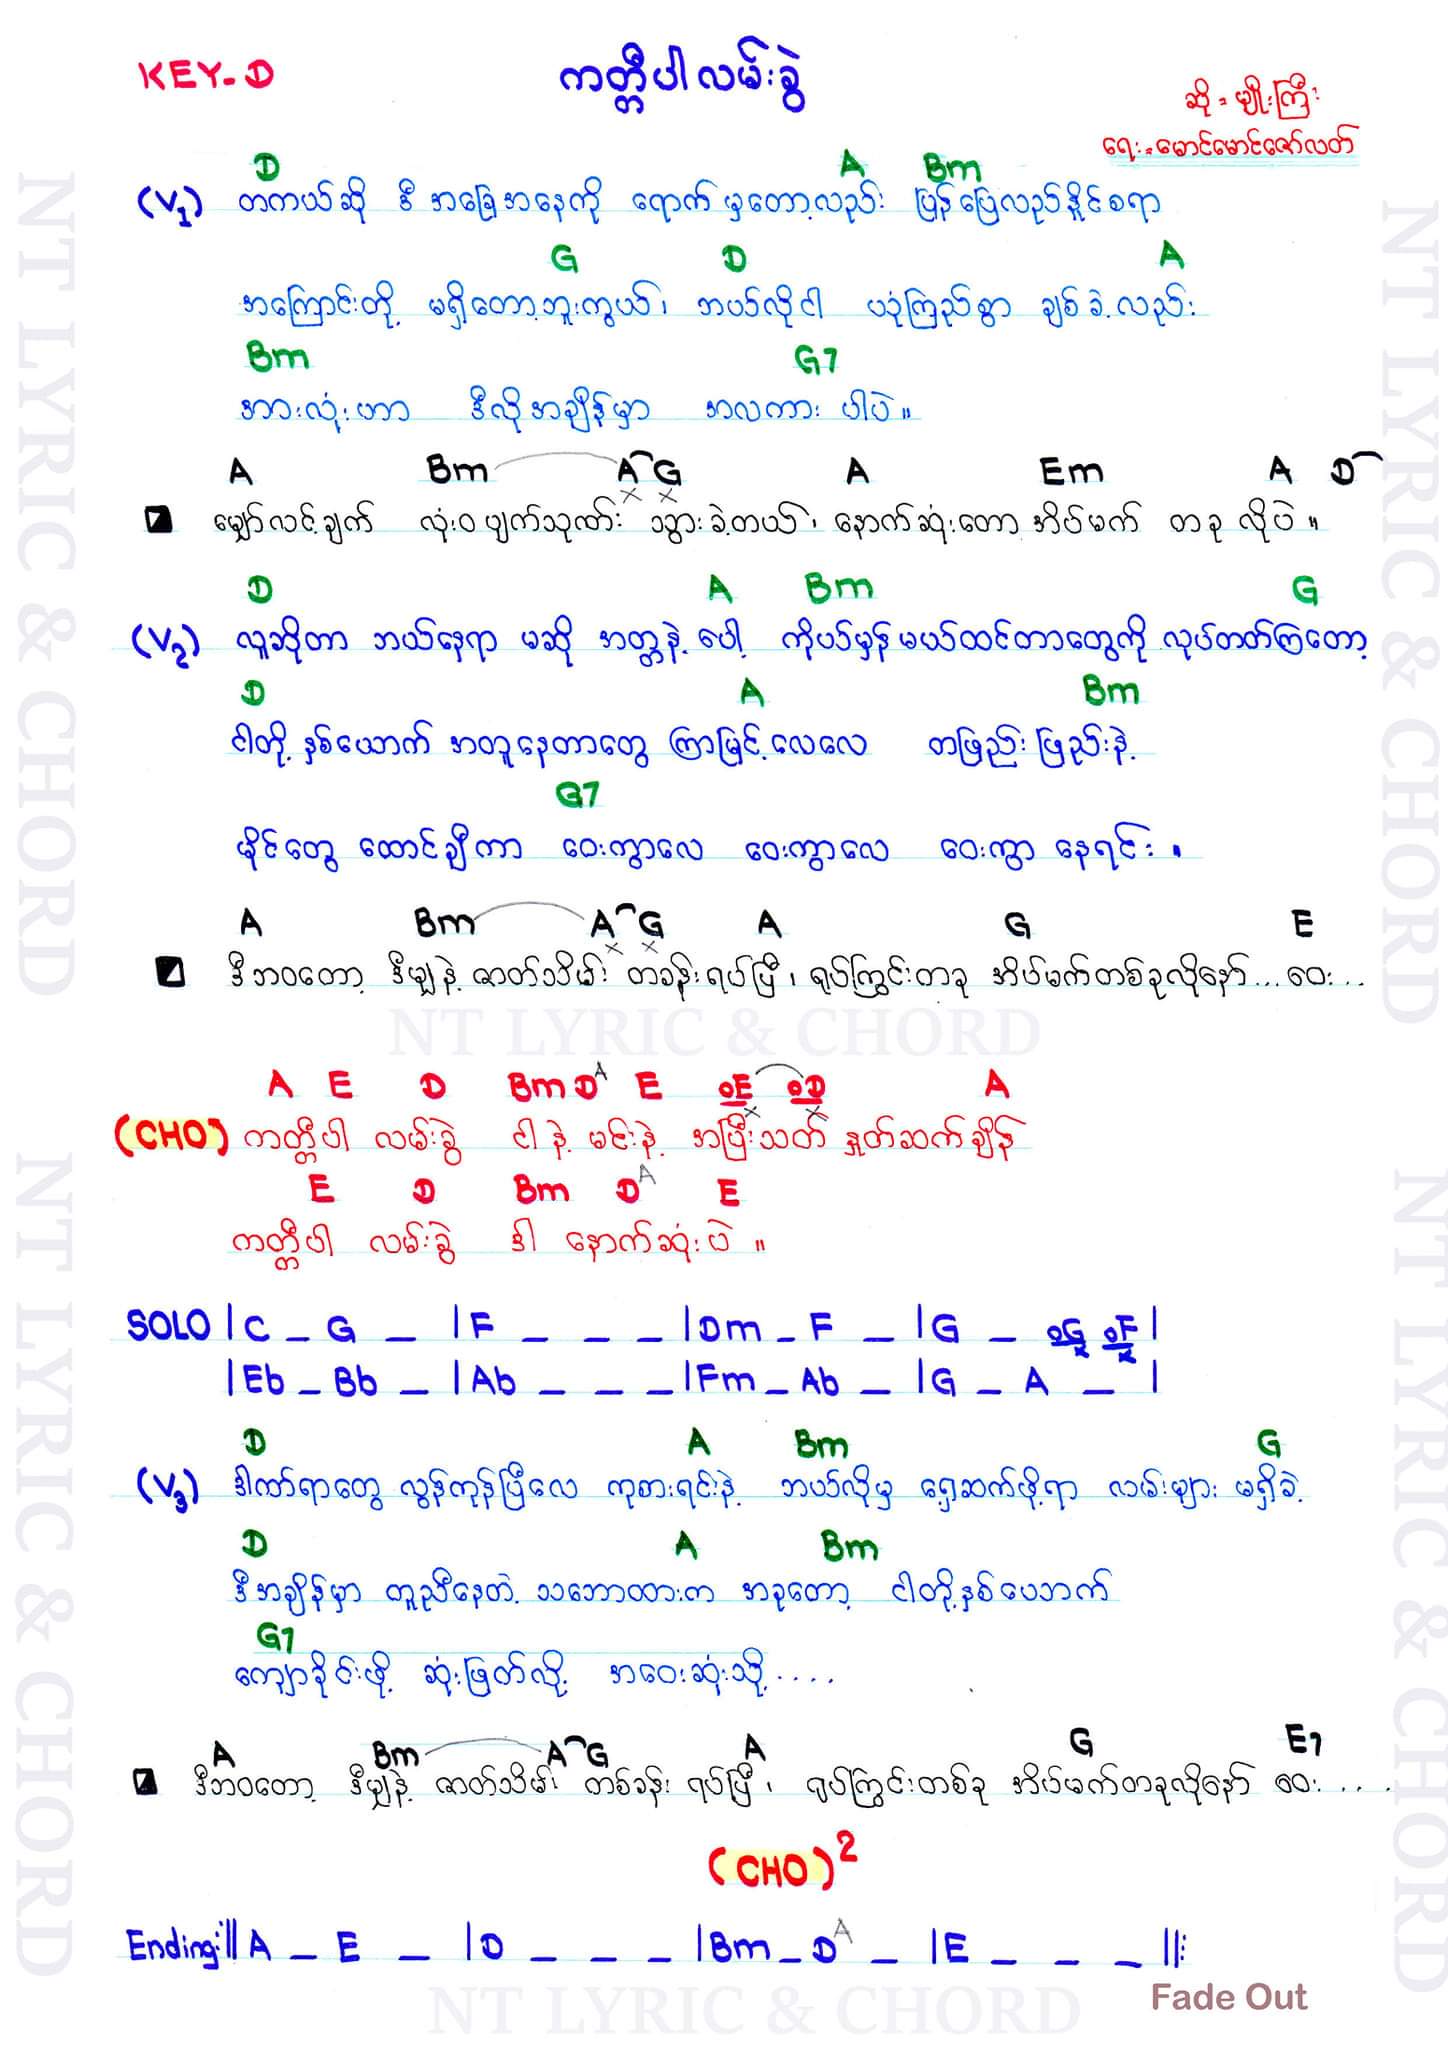 KEY-D
ကတ္တီပါလမ်းခွဲ
ဆို - မျိုးကြီး
ရေး - မောင်မောင်ဇော်လတ်
D A Bm
(V1) တကယ်ဆို ဒီ အခြေအနေကို ရောက်မှတော့လည်း ပြန်ပြေလည်နိုင်စရာ
G D A
အကြောင်းတို့ မရှိတော့ဘူးကွယ်၊ ဘယ်လိုငါ ယုံကြည်စွာ ချစ်ခဲ့လည်း
Bm G7
အားလုံးဟာ ဒီလိုအချိန်မှာ အလကား ပါပဲ။
A Bm A G A Em A D
မျှော်လင့်ချက် လုံးဝ ပျက်သုဏ်း သွားခဲ့တယ်၊ နောက်ဆုံးတော့ အိပ်မက် တခု လိုပဲ။
D A Bm G
(V2) လူဆိုတာ ဘယ်နေရာ မဆို အတ္တနဲ့ပေါ့ ကိုယ်မှန်မယ်ထင်တာတွေကို လုပ်တတ်ကြတော့
D A Bm
ငါတို့နှစ်ယောက် အတူနေတာတွေ ကြာမြင့်လေလေ တဖြည်းဖြည်းနဲ့
G7
မိုင်တွေ ထောင်ချီကာ ဝေးကွာလေ ဝေးကွာလေ ဝေးကွာ နေရင်း ။
A Bm A G A G E
ဒီဘဝတော့ ဒီမျှနဲ့ ဇာတ်သိမ်း တခန်းရပ်ပြီ၊ ရုပ်ကြွင်းတခု အိပ်မက်တစ်ခုလိုနော်... ဝေး...
A E D Bm D A E E D A
(CHO) ကတ္တီပါ လမ်းခွဲ ငါနဲ့ မင်းနဲ့ အပြီးသတ် နှုတ်ဆက်ချိန်
E D Bm D A E
ကတ္တီပါ လမ်းခွဲ ဒါ နောက်ဆုံးပဲ ။
SOLO | C _ G _ | F _ _ _ | Dm _ F _ | G _ G F |
| Eb _ Bb _ | Ab _ _ _ | Fm _ Ab _ | G _ A _ |
D A Bm G
(V3) ဒါဏ်ရာတွေ လွန်ကုန်ပြီလေ ကုစားရင်းနဲ့ ဘယ်လိုမှ ရှေ့ဆက်ဖို့ရာ လမ်းများ မရှိခဲ့
D A Bm
ဒီအချိန်မှာ တူညီနေတဲ့ သဘောထားက အခုတော့ ငါတို့နှစ်ယောက်
G7
ကျောခိုင်းဖို့ ဆုံးဖြတ်လို့ အဝေးဆုံးသို့....
A Bm A G A G E7
ဒီဘဝတော့ ဒီမျှနဲ့ ဇာတ်သိမ်း တစ်ခန်း ရပ်ပြီ၊ ရုပ်ကြွင်းတစ်ခု အိပ်မက်တခုလိုနော် ဝေး....
(CHO)2
Ending :|| A _ E _ | D _ _ _ | Bm _ D A _ | E _ _ _ ||:
Fade Out
NT LYRIC & CHORD
NT LYRIC & CHORD
NT LYRIC & CHORD
NT LYRIC & CHORD
NT LYRIC & CHORD
NT LYRIC & CHORD